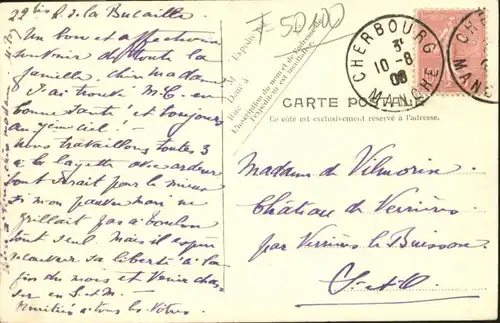 22 bis R. de la Bucaille
Un bon et affectueux
souvenir de toute la
famille, chère madame
J'ai trouvé M. C. en
bonne santé et toujours
au 7ème ciel!
Nous travaillons toutes 3
à la layette avec ardeur
tout serait pour le mieux
si mon pauvre mari ne
grillait pas à Toulon
tout seul. Mais il espère
recouvrer sa liberté à la
fin du mois et venir chas-
ser en S. et M.
Amitiés à tous les Vôtres
50100
Expédié
M
Dem^t à
Rue
L'inscription du nom et de l'adresse de
l'expéditeur est facultative.
CHERBOURG
10-8
06
MANCHE
CHE
MANC
CARTE POSTALE
Ce côté est exclusivement réservé à l'adresse.
Madame de Vilmorin
Château de Verrières
par Verrières le Buisson
S. et O.